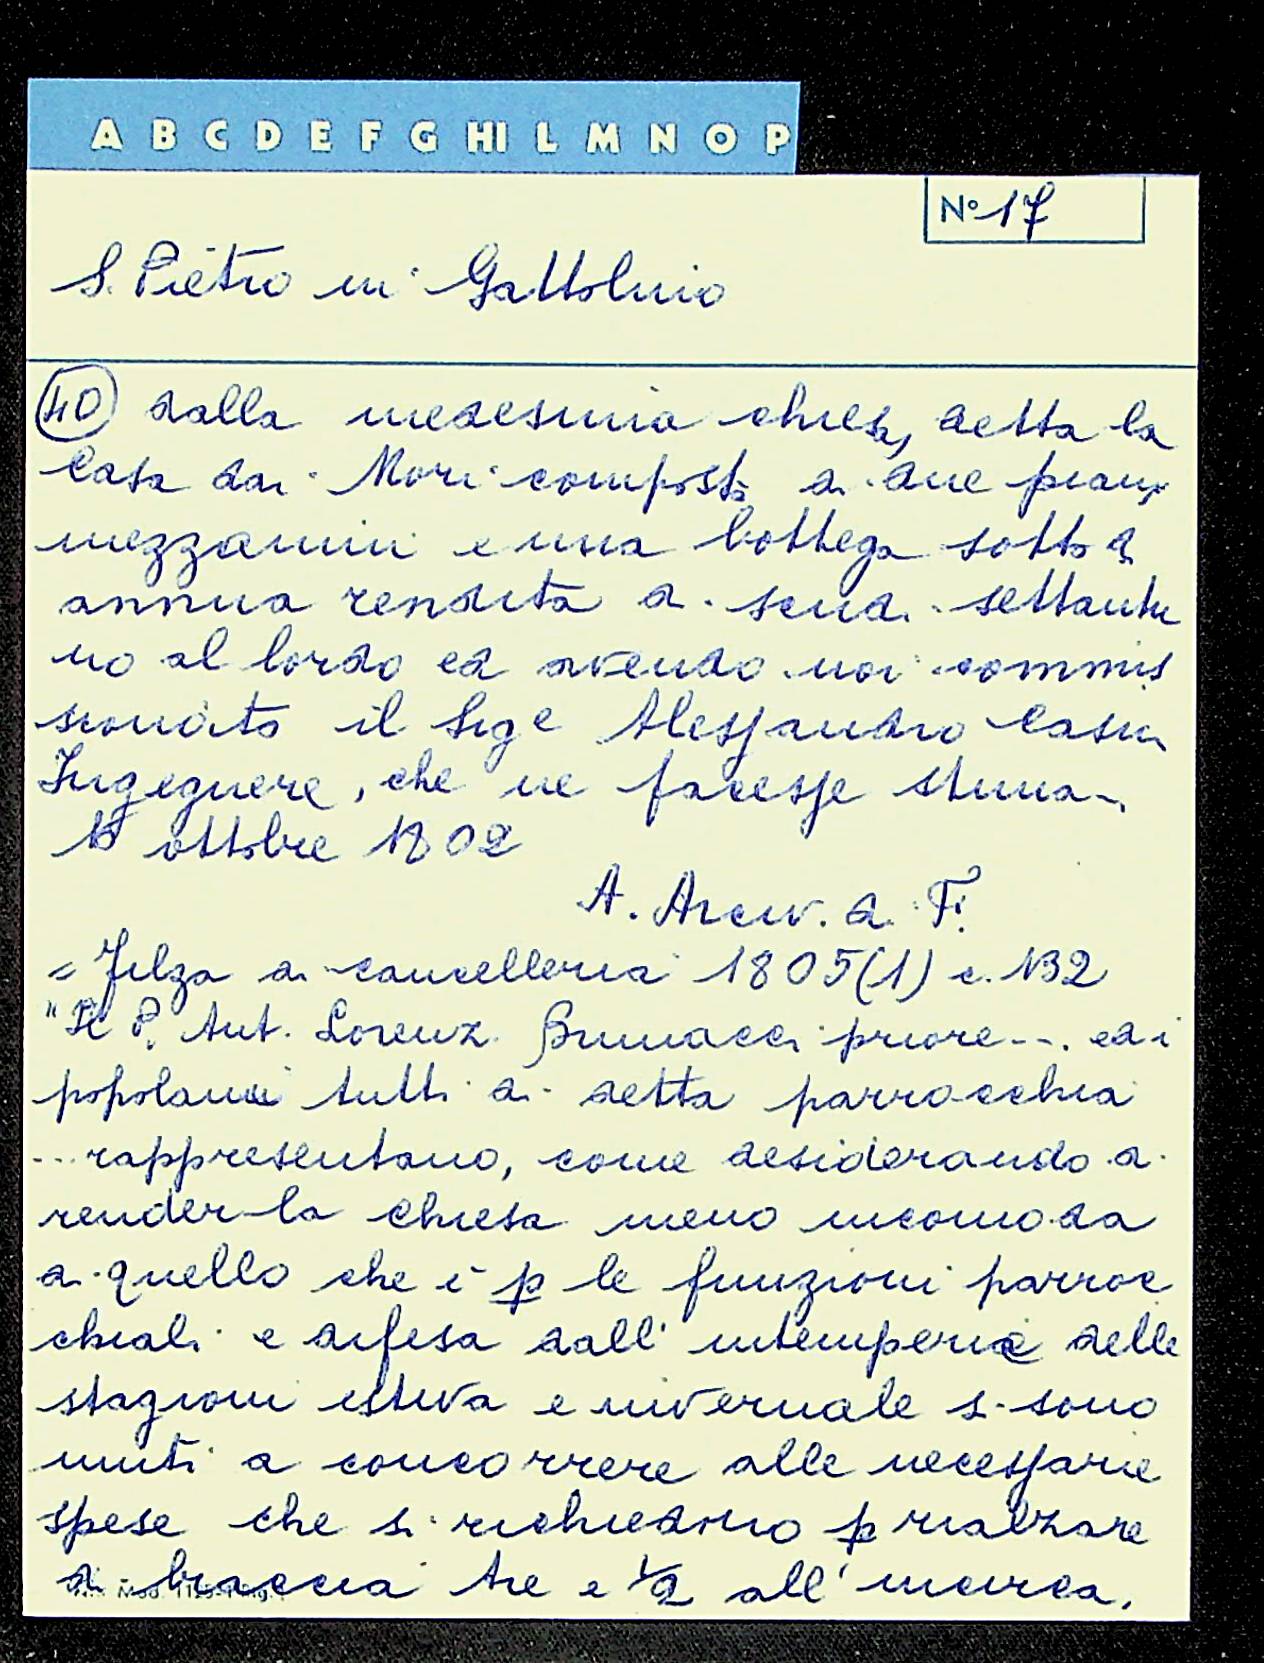 A B C D E F G HI L M N O P
N° 17
S. Pietro in Gattolino
40 dalla medesima chiesa, detta la
Casa dei Mori composta di due piani,
mezzanini e una bottega sotto di
annua rendita di scudi settantu
no al lordo ed avendo noi commis
sionato il Sige Alessandro Casini
Ingegnere, che ne facesse stima
15 ottobre 1802
A. Arciv. di Fi.
= Filza di cancelleria 1805(1) c. N32
"Il P. Ant. Lorenz. Brunacci priore... ed i
popolani tutti di detta parrocchia
...rappresentano, come desiderando di
render la chiesa meno incomoda
di quello che è p le funzioni parroc
chiali e difesa dall' intemperie delle
stagioni estiva e invernale si sono
uniti a concorrere alle necessarie
spese che si richiedono p rialzare
di braccia tre e 1/2 all' incirca,